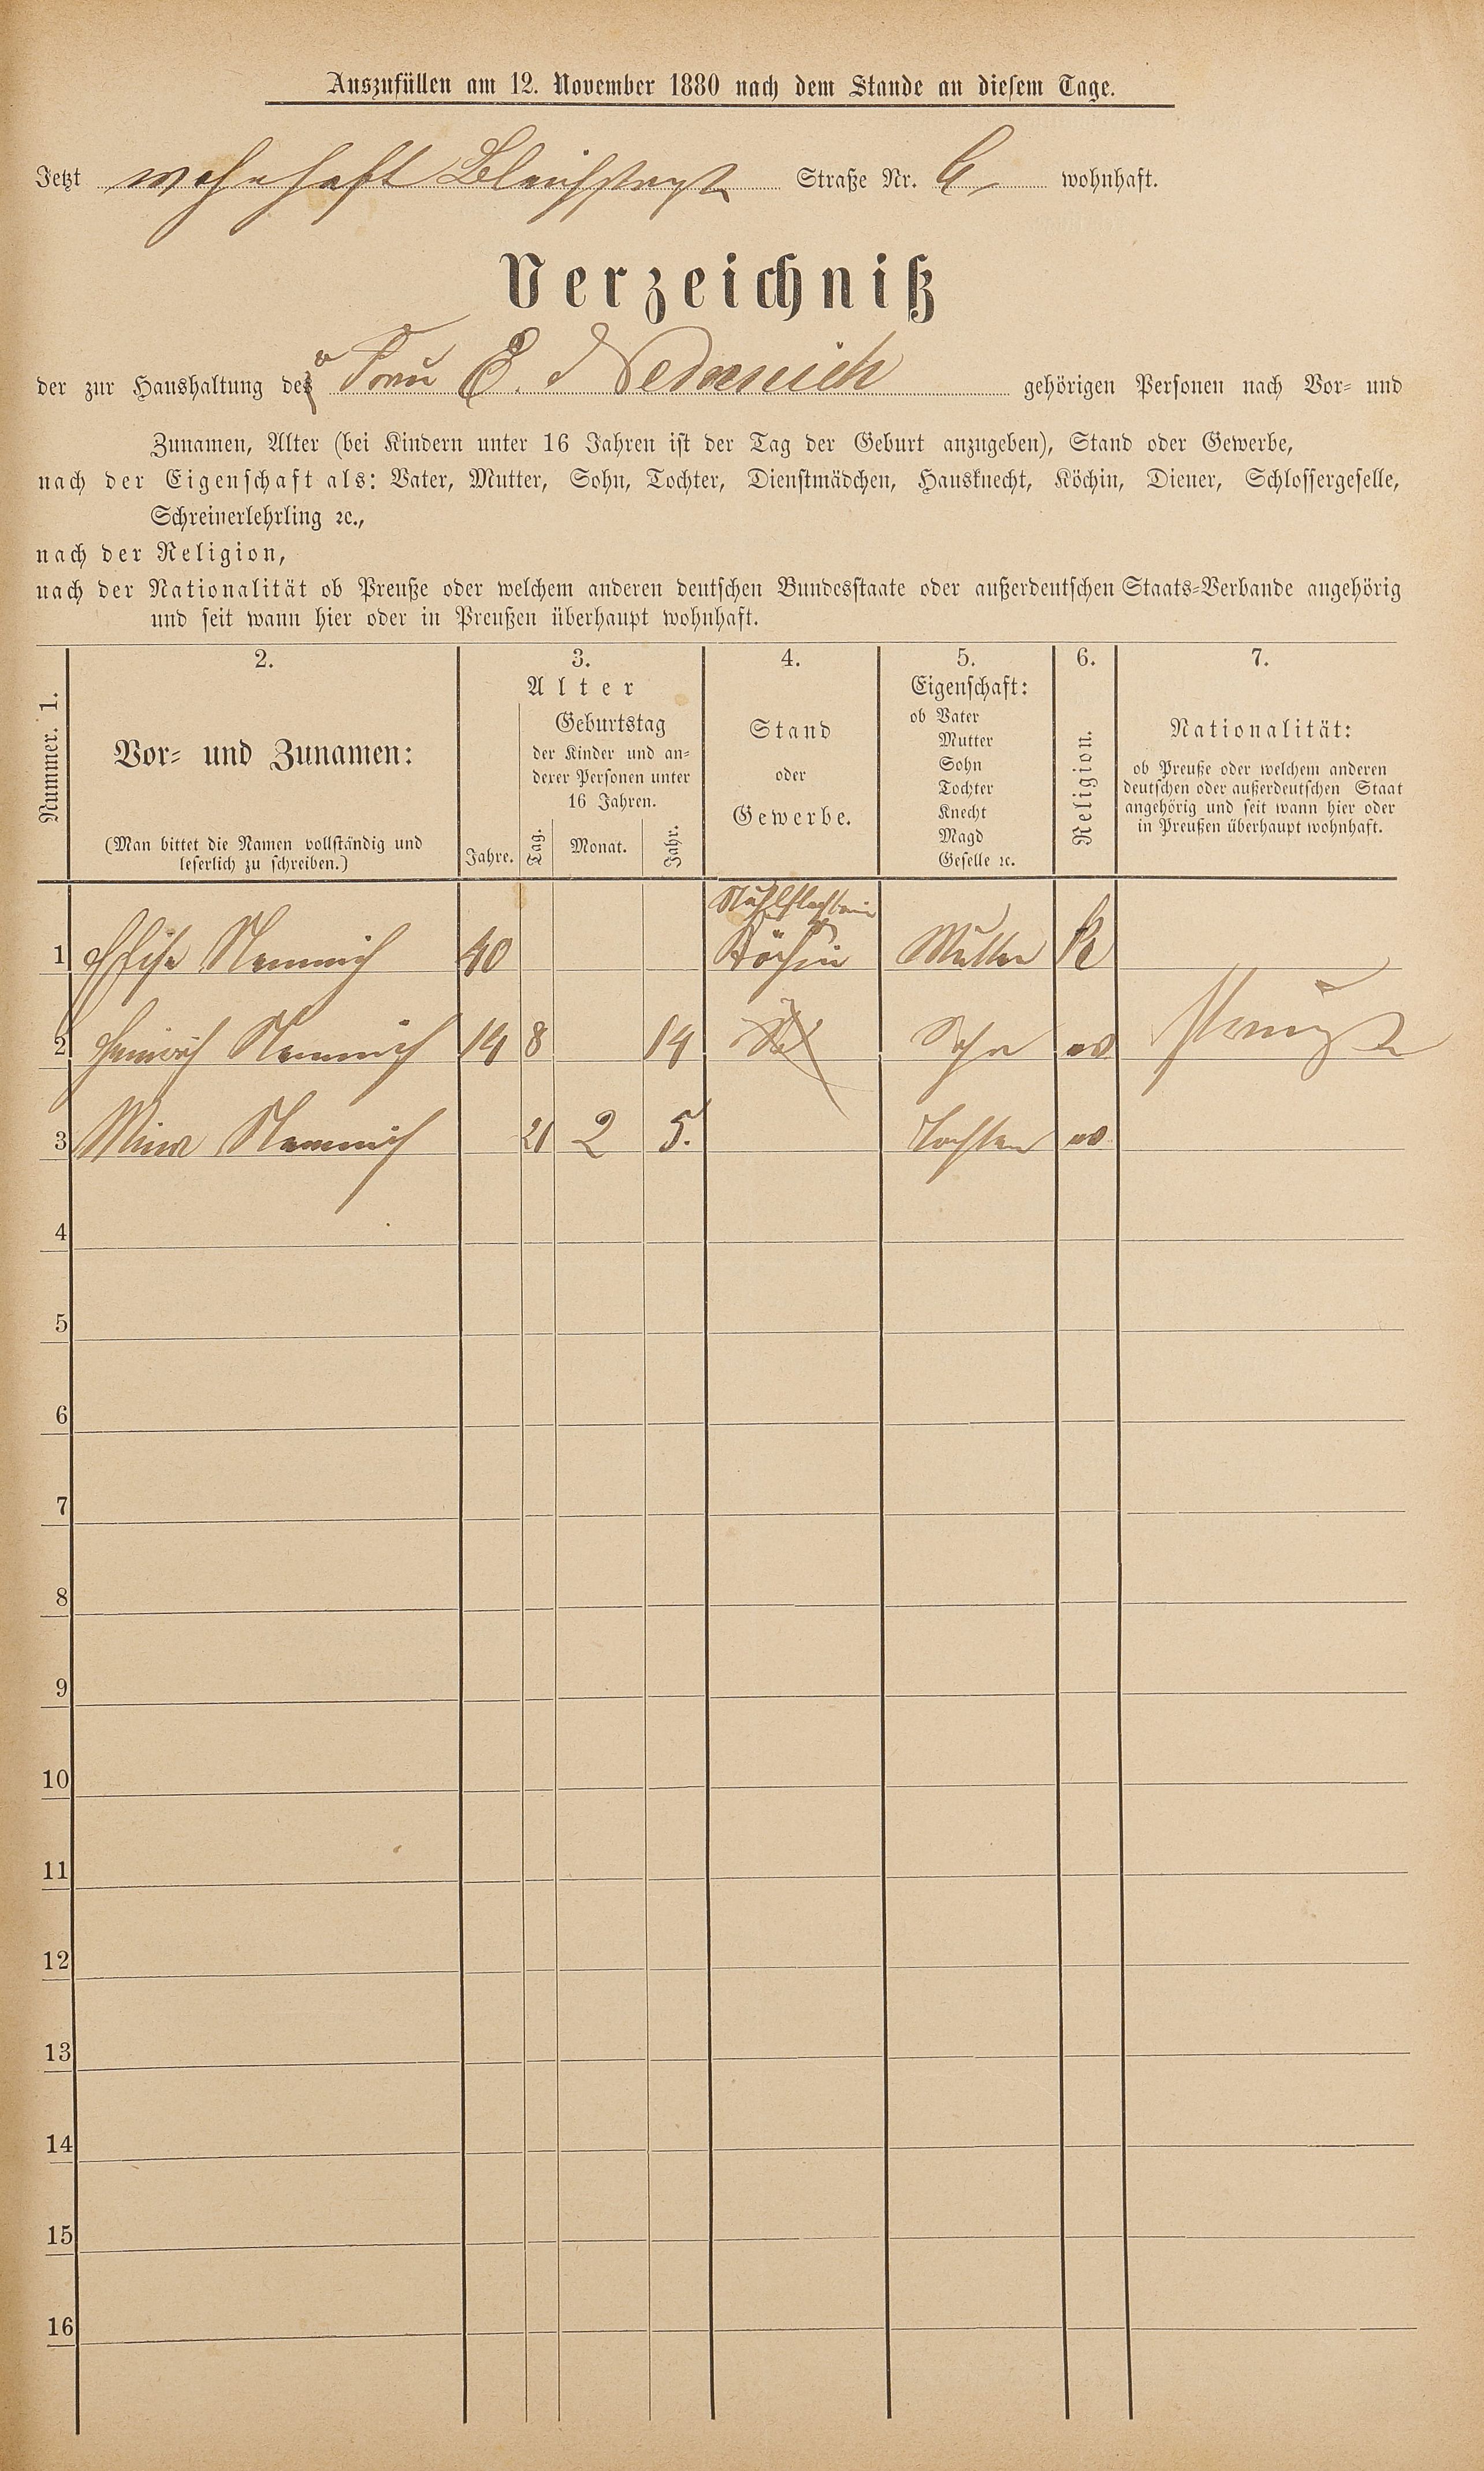 Auszufüllen am 12. November 1880 nach dem Stande an diesem Tage.
Jetzt wohnhaft Bleichstraße Straße Nr. 6, wohnhaft.
Verzeichniß
der zur Haushaltung der Frau E. gehörigen Personen nach Vor- und
Zunamen, Alter (bei Kindern unter 16 Jahren ist der Tag der Geburt anzugeben), Stand oder Gewerbe,
nach der Eigenschaft als: Vater, Mutter, Sohn, Tochter, Dienstmädchen, Hausknecht, Köchin, Diener, Schlossergeselle,
Schreinerlehrling ꝛc.,
nach der Religion,
nach der Nationalität ob Preuße oder welchem anderen deutschen Bundesstaate oder außerdeutschen Staats-Verbande angehörig
und seit wann hier oder in Preußen überhaupt wohnhaft.
Nummer. 1.
2.
Vor- und Zunamen:
(Man bittet die Namen vollständig und
leserlich zu schreiben.)
3.
Alter
Jahre.
Geburtstag
der Kinder und an-
derer Personen unter
16 Jahren.
Tag. Monat. Jahr.
4.
Stand
oder
Gewerbe.
5.
Eigenschaft:
ob Vater
Mutter
Sohn
Tochter
Knecht
Magd
Geselle ꝛc.
6.
Religion.
7.
Nationalität:
ob Preuße oder welchem anderen
deutschen oder außerdeutschen Staat
angehörig und seit wann hier oder
in Preußen überhaupt wohnhaft.
Stuhlflechterin
1 Elise Nemnich 40 Köchin Mutter K
2 Heinrich Nemnich 14 8 14 Sohn ev Preuße
3 Mina Nemnich 21 2 5. Tochter ev
4
5
6
7
8
9
10
11
12
13
14
15
16